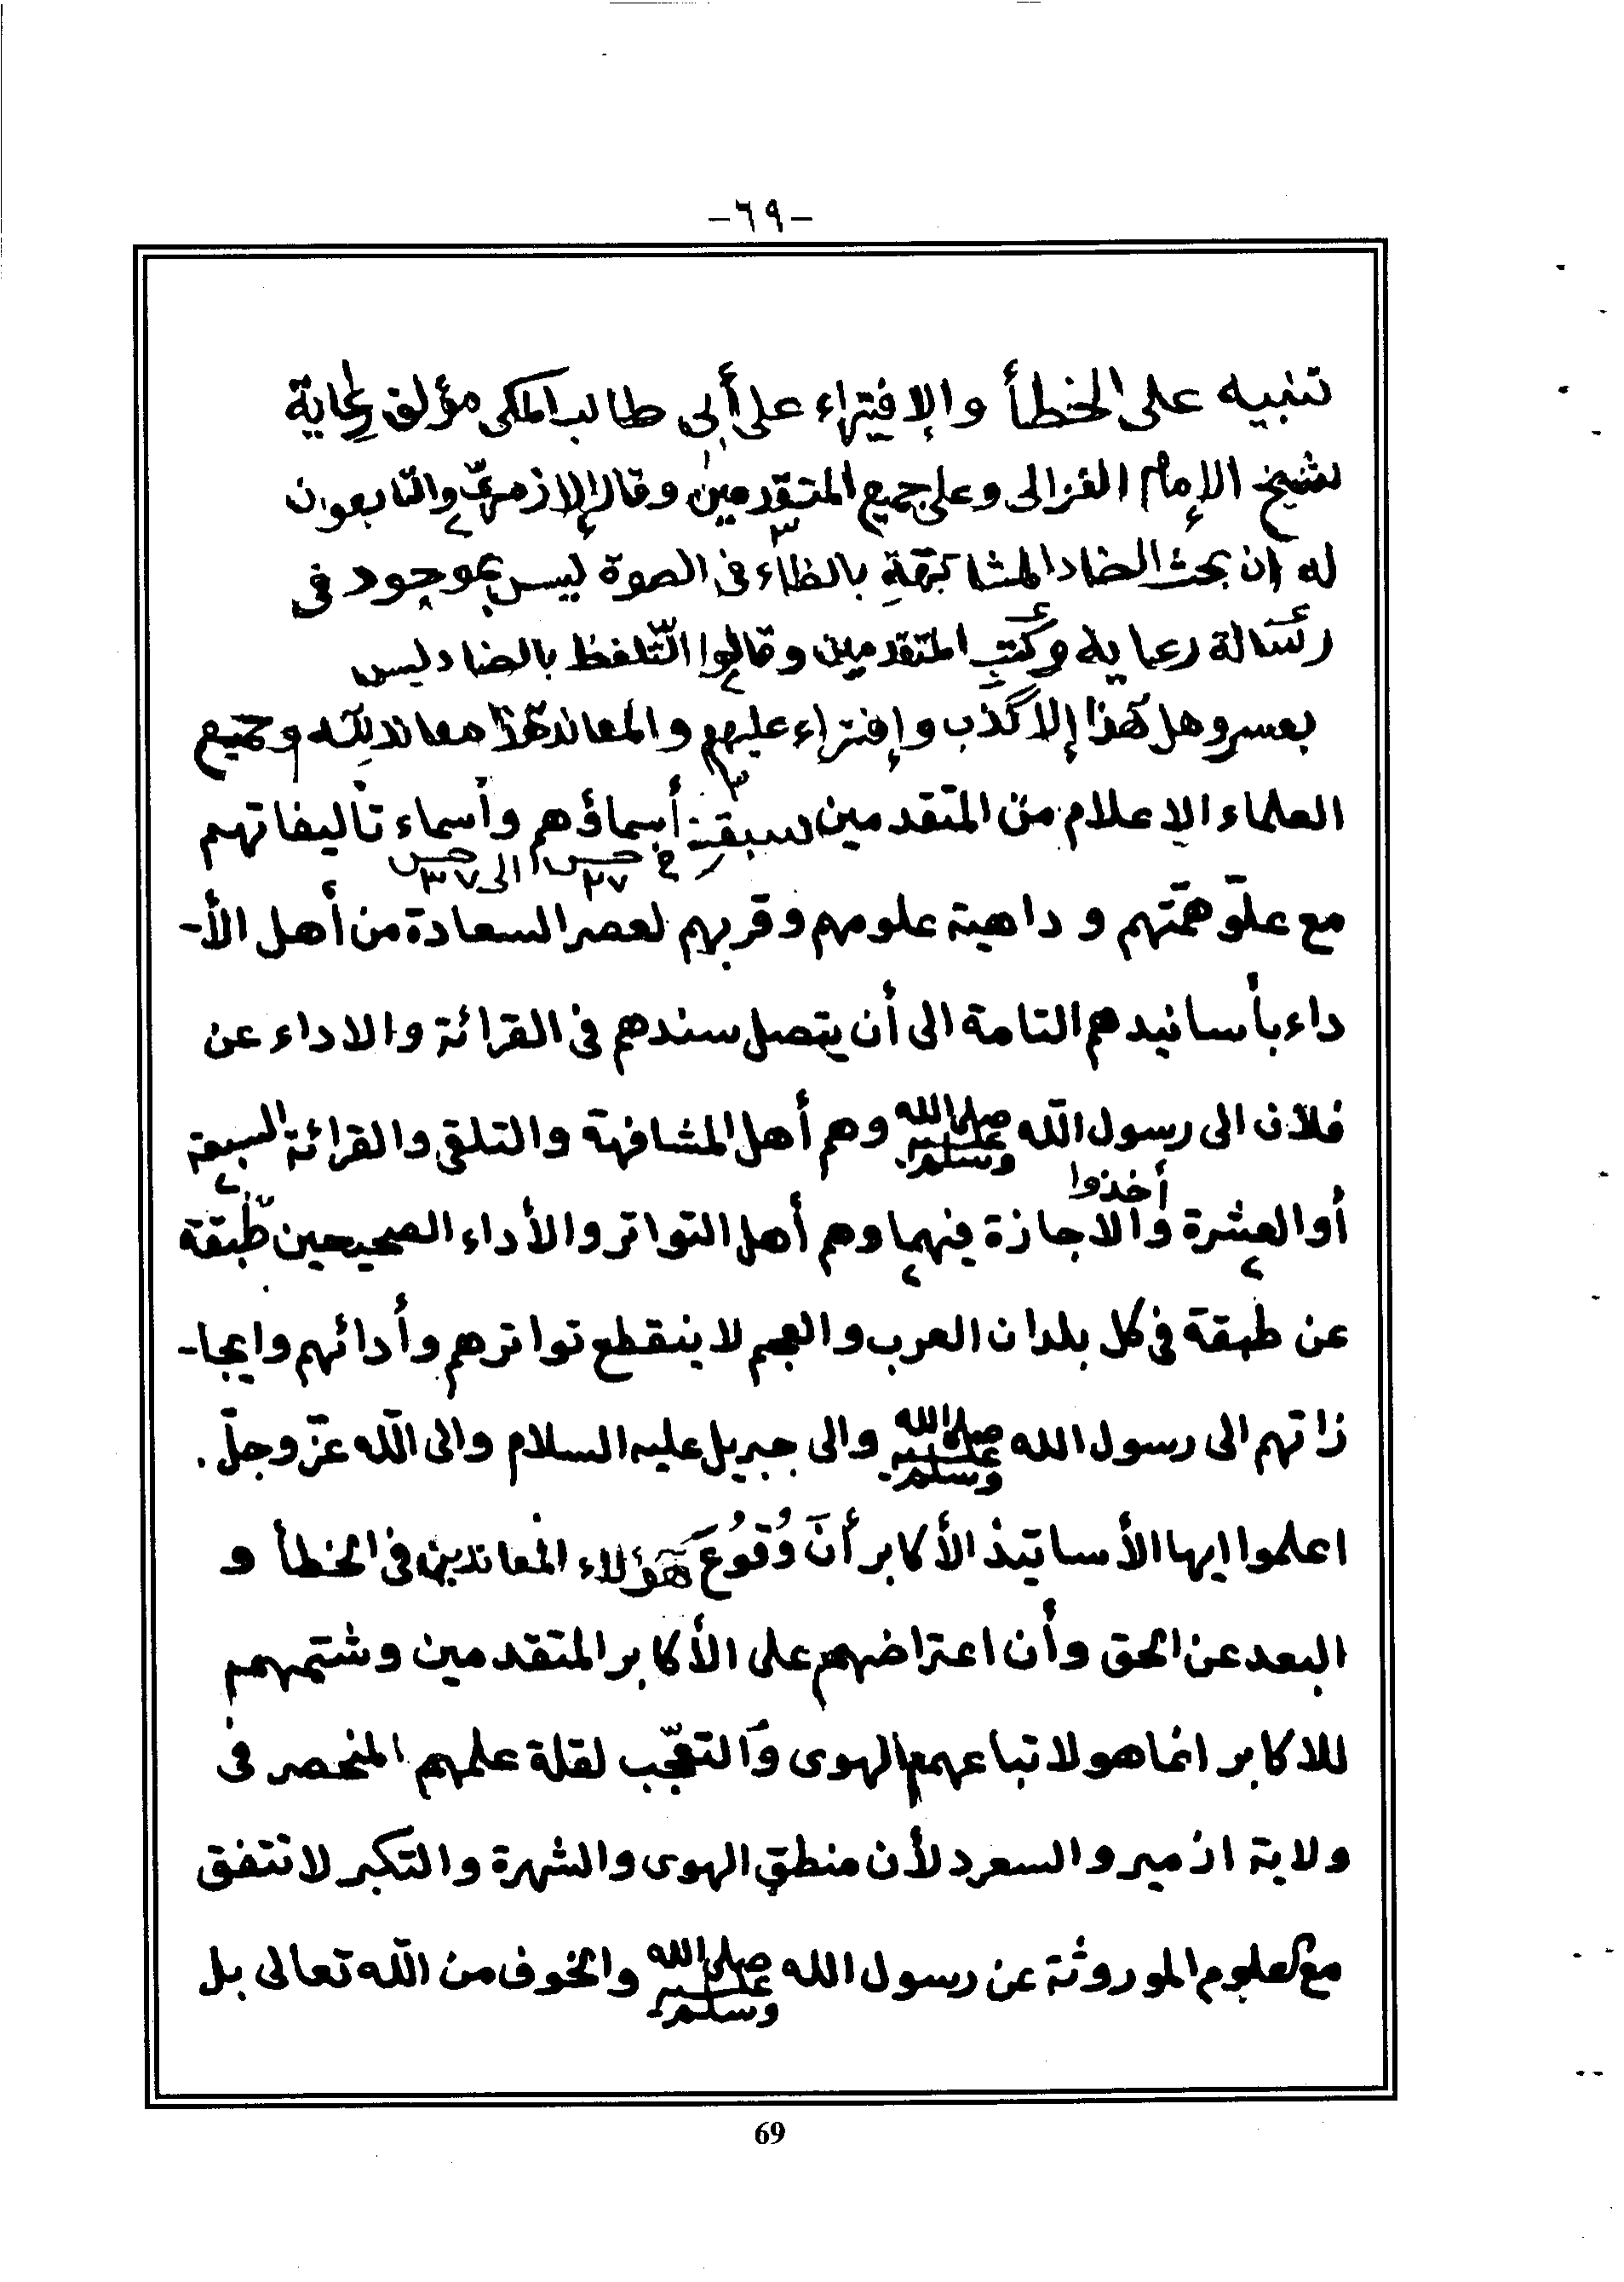 -٦٩-
تنبيه على الخطأ والإفتراء على أبى طالب المكى مؤلف رعاية
لشيخ الإمام الغزالى وعلى جميع المتقدمين وقال الإزمرىّ والتابعون
له ان بحث الضاد المشابهةِ بالظاء فى الصوة ليس بموجود فى
رسالة رعاية وكتبِ المتقدمين وقالوا التّلفظ بالضاد ليس
بعسر وهل هذا إلا كذب وإفتراء عليهم والمعاند هذا معاند لله وجميع
العلماء الاعلام من المتقدمين سبقت أسماؤهم وأسماء تأليفاتهم
حـ ٢٧ الى ٣٧
مع علوّ همّتهم و داهية علومهم وقربهم لعصر السعادة من أهل الأ-
داء بأسانيدهم التامة الى أن يتصل سندهم فى القرائة والاداء عن
فلان الى رسول الله صلى الله عليه وسلم وهم أهل المشافهة والتلقى والقرائة السبعة
أخذوا
أو العشرة والاجازة فيهما وهم أهل التواتر والأداء الصحيحين طبقة
عن طبقة فى كل بلدان العرب والعجم لا ينقطع تواترهم وأدائهم وايجا-
زاتهم الى رسول الله صلى الله عليه وسلم والى جبريل عليه السلام والى الله عزّ وجلّ.
اعلموا ايها الأساتيذ الأكابر أنّ وُقُوعَ هؤلاء المعاندين فى الخطأ و
البعد عن الحق وأن اعتراضهم على الأكابر المتقدمين وشتمهم
للاكابر انما هو لاتباعهم الهوى والتعجّب لقلة علمهم المنحصر فى
ولاية ازمير والسعرد لأن منطق الهوى والشهرة والتكبر لا تتفق
مع العلوم الموروثة عن رسول الله صلى الله عليه وسلم والخوف من الله تعالى بل
69